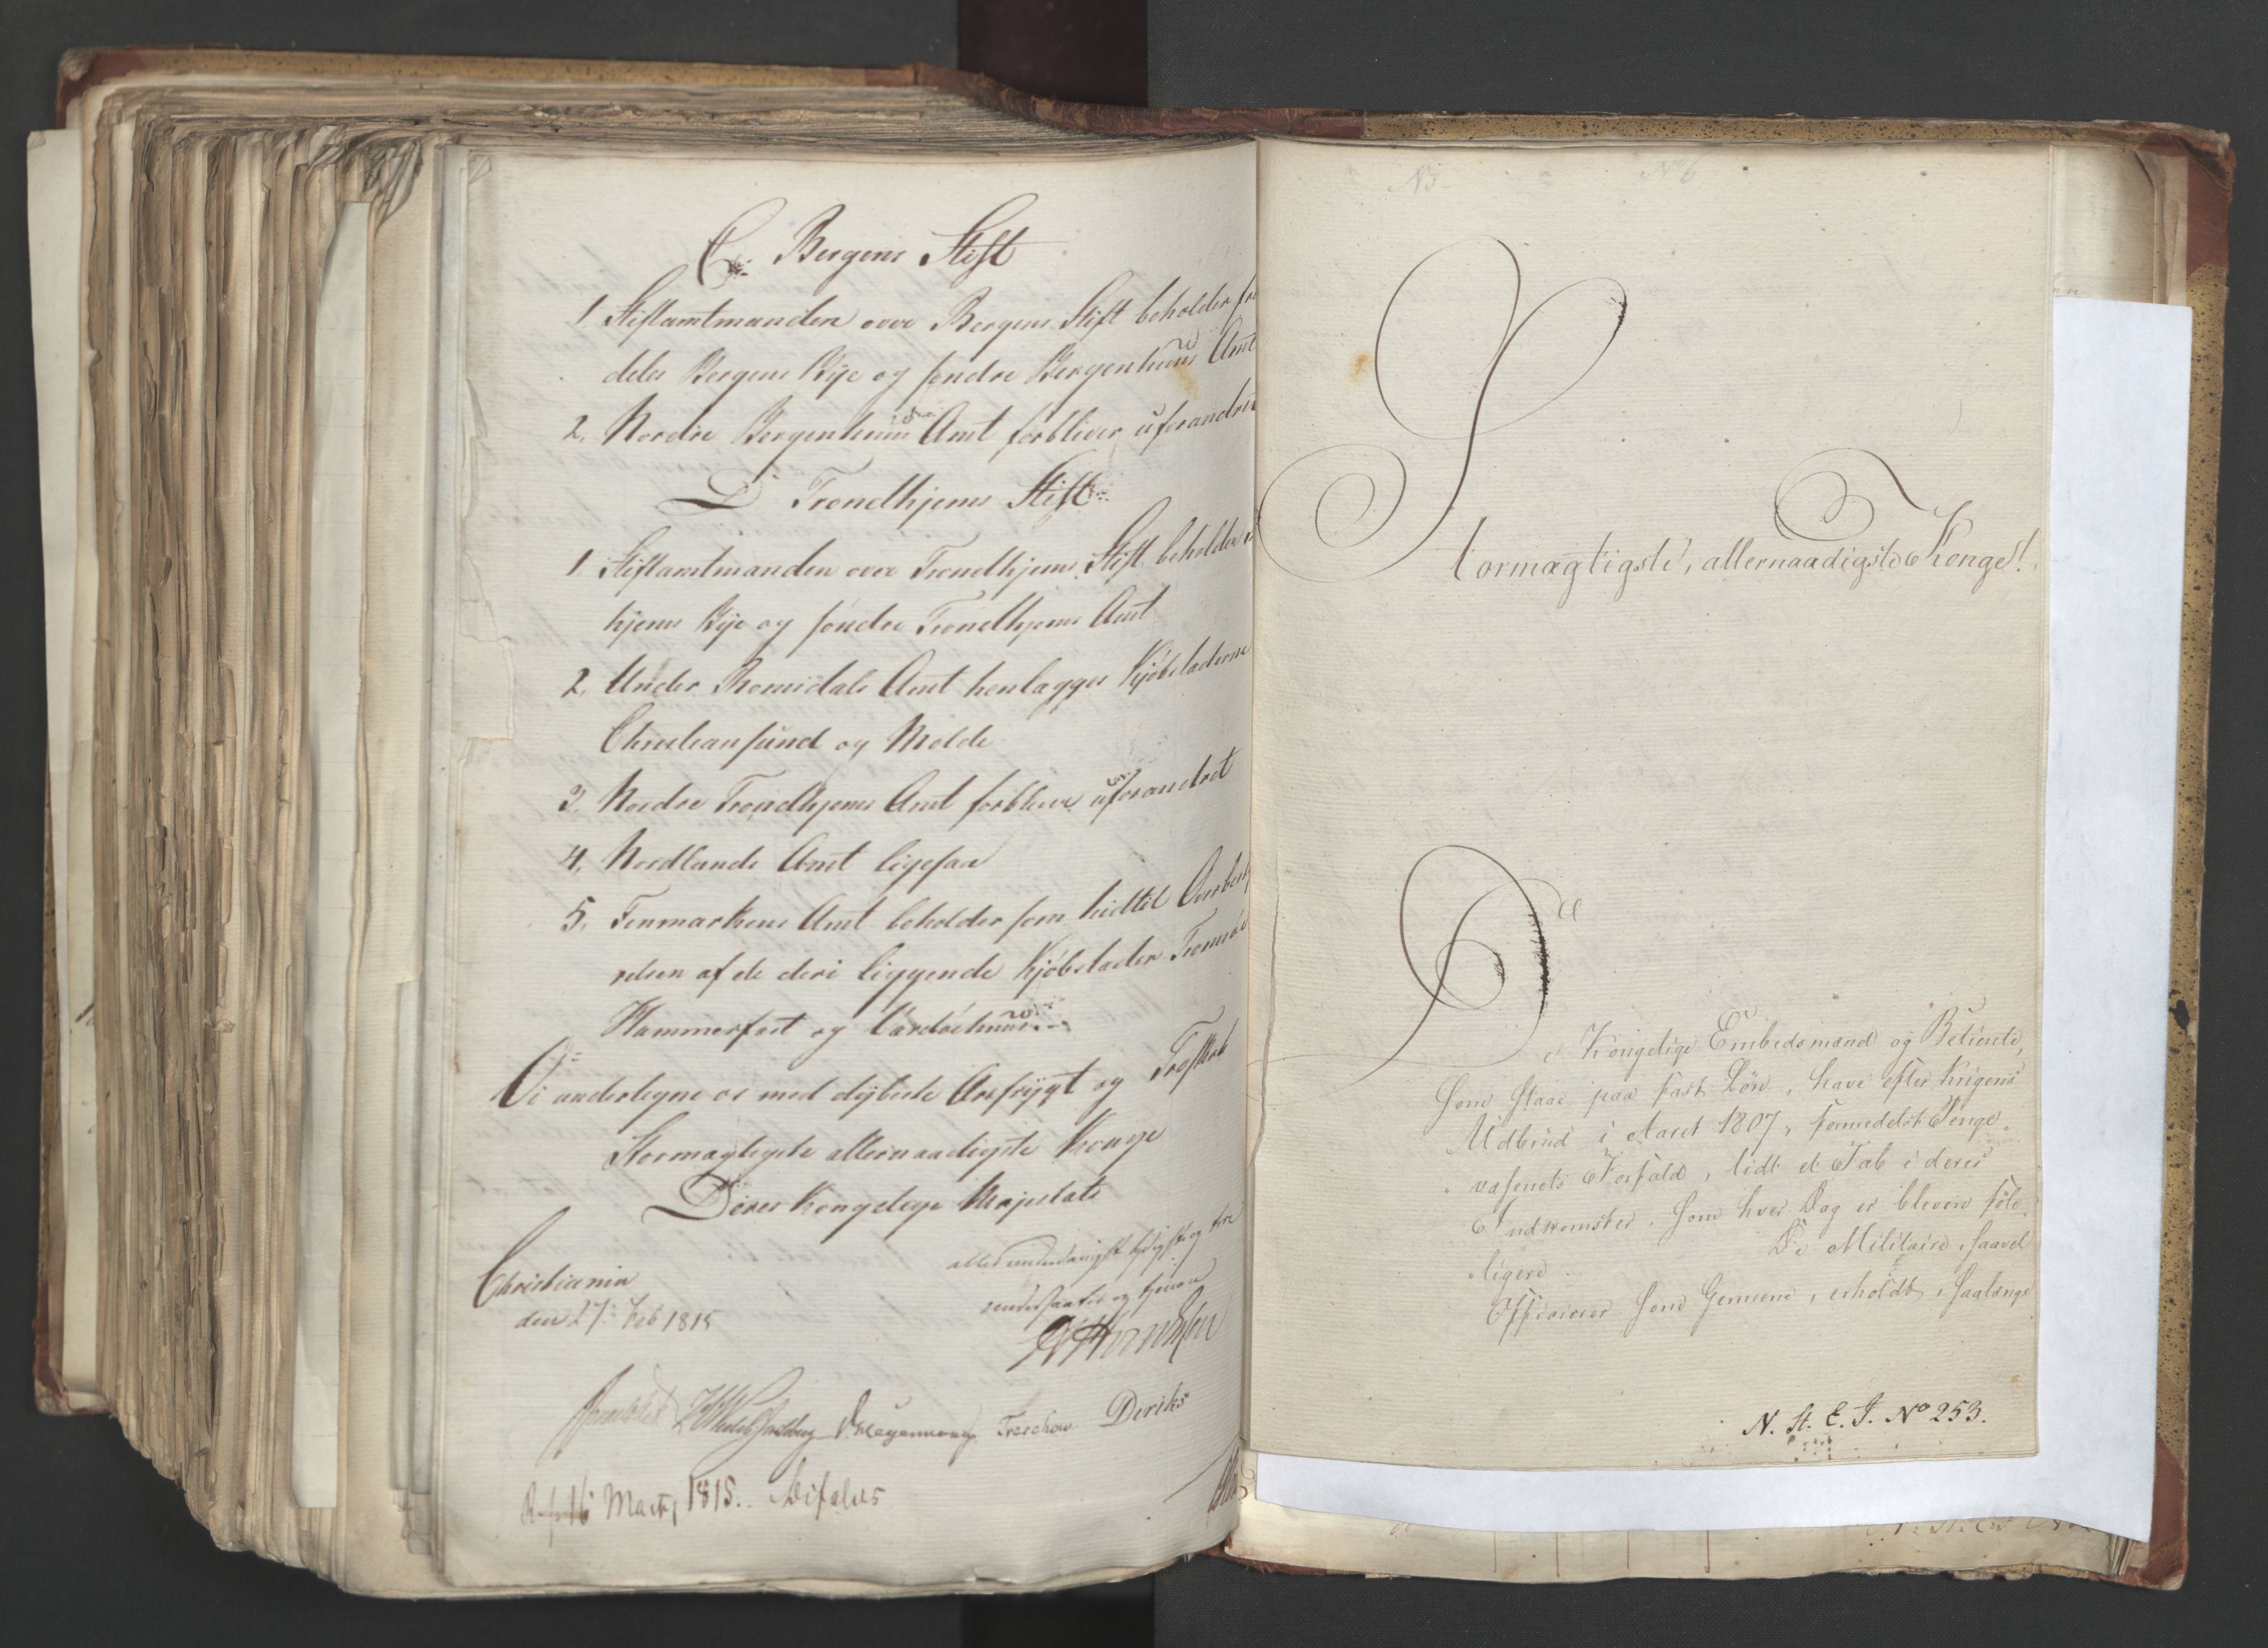 C. Bergens Stift
1. Stiftamtmanden over Bergens Stift beholder fre
deles Bergens Bye og søndre Bergenhuus Amt
2. Nordre Bergenhuus Amt forbliver uforandret
D Trondhjems Stift
1. Stiftamtmanden over Trondhjems Stift beholder
hjems Bye og søndre Trondhjems Amt
2. Under Romsdals Amt henlægges Kjøbstæderne
Christiansund og Molde
3. Nordre Trondhjems Amt forbliver uforandret
4. Nordlands Amt ligesaa
5. Finmarkens Amt beholder som hidtil Overbest
relsen af de deri liggende Kjøbstæder Tromsøe
Hammerfest og Vardøehuus
Vi undertegne os med dybeste Ærefrygt og Troskab
Stormægtigste allernaadigste Konge
Deres Kongelige Majestæts
allerunderdanigst lydigste og troe
Christiania
undersaatter og tjenere
den 27 Feb 1815
Treschow Diriks
16 Marts 1815.
No 6
Stormægtigste, allernaadigste Konge!
De Kongelige Embedsmænd og Betiente,
som staae paa fast Løn, have efter Krigens
Udbrud i Aaret 1807, formedelst Penge-
væsenets Forfald, lidt et Tab i deres
Indkomster, som hver Dag er bleven føle-
ligere. De Militaire, saavel
Officierer som Gemene, erholdt, saalænge
N. St. E. J. No 253.